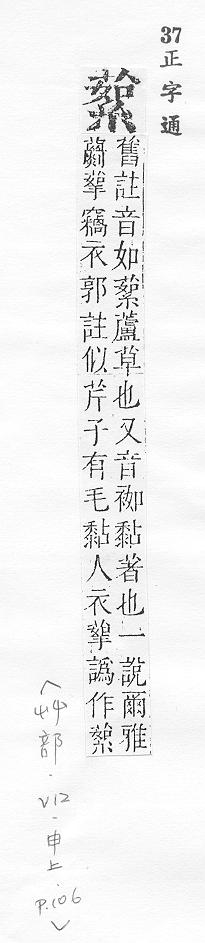 37 正字通
蕠
舊註音如蕠蘆草也又音袽黏著也一說爾雅
蘮蒘竊衣郭註似芹子有毛黏人衣蒘譌作蕠
〈艸部.V12.申上.P.106〉